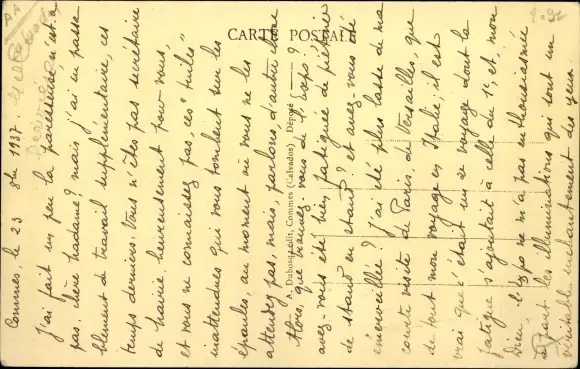 CARTE POSTALE
A. Dubosq, édit., Commes (Calvados) Déposé
Commes, le 23 8bre 1937.
J'ai fait un peu la paresseuse, n'est-ce
pas, chère Madame? mais j'ai eu passa-
blement de travail supplémentaire, ces
temps derniers. Vous n'êtes pas secrétaire
de mairie, heureusement pour vous,
et vous ne connaissez pas, ces "tuiles"
inattendues qui vous tombent sur les
épaules, au moment où vous ne les
attendez pas, mais, parlons d'autre chose
Alors, que trouvez-vous de l'Expo?
avez-vous été bien fatiguée de piétiner
de stand en stand? et avez-vous été
émerveillée? J'ai été plus lasse de ma
courte visite de Paris, de Versailles, que
de tout mon voyage en Italie, il est
vrai que c'était un 2e voyage dont la
fatigue s'ajoutait à celle du 1er, et, mon
Dieu, l'Expo ne m'a pas enthousiasmée
à part les illuminations qui sont un
véritable enchantement des yeux.